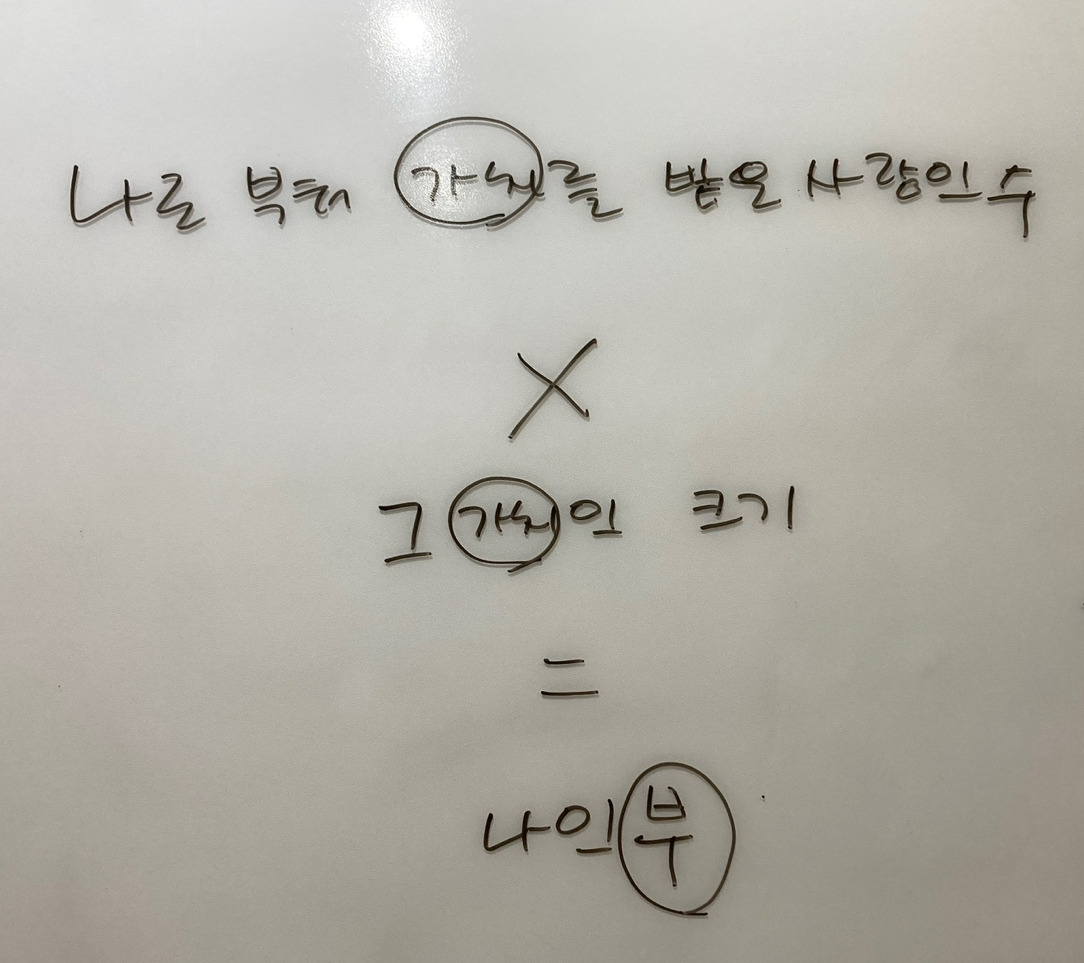 나로 부터 가치를 받은 사람의 수
X
그 가치의 크기
=
나의 부